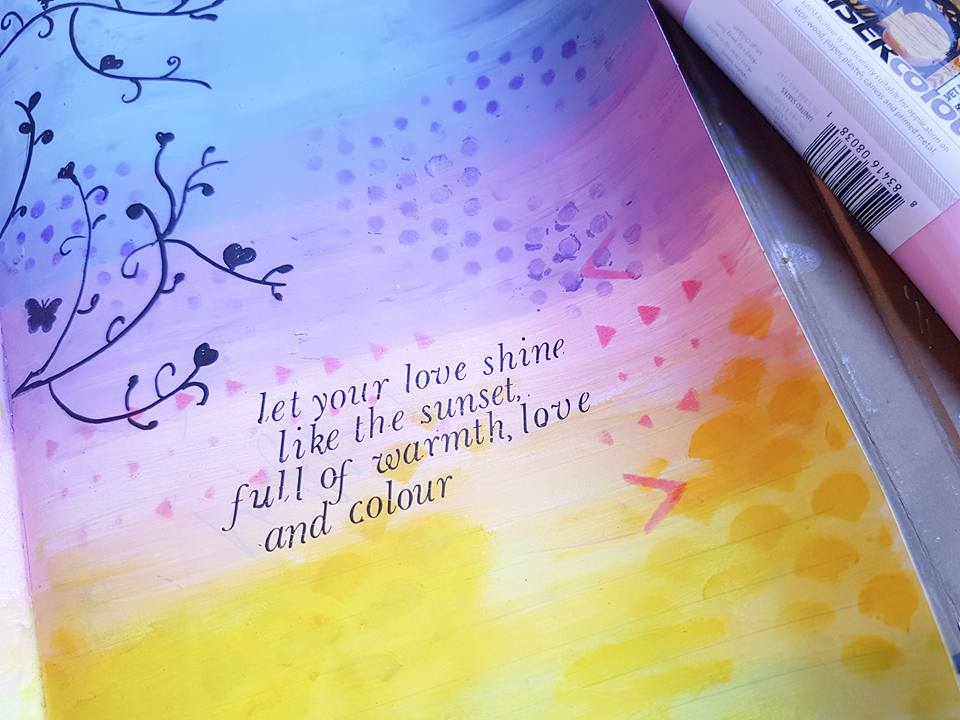 let your love shine
like the sunset,
full of warmth, love
and colour
KAISERcolour is particularly suitable for application on
MDF, wood, paper, plaster, canvas and primed metal.
8 83416 08038 1